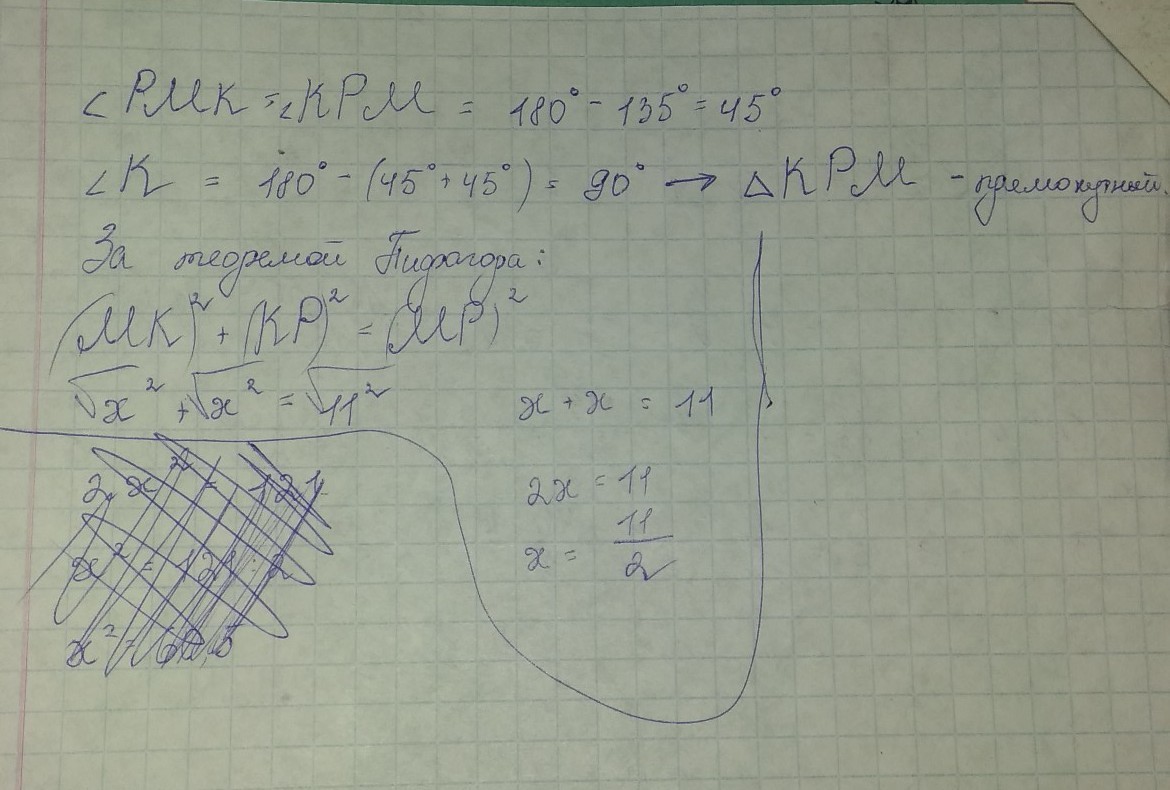 ∠PMK = ∠KPM = 180° - 135° = 45°
∠K = 180° - (45° + 45°) = 90° → △KPM - прямокутный.
За теоремой Пифагора:
(MK)² + (KP)² = (MP)²
√x² + √x² = √11²
x + x = 11
2x = 11
x = 11/2
2x² = 121
x² = 121 : 2
x² = 60,5